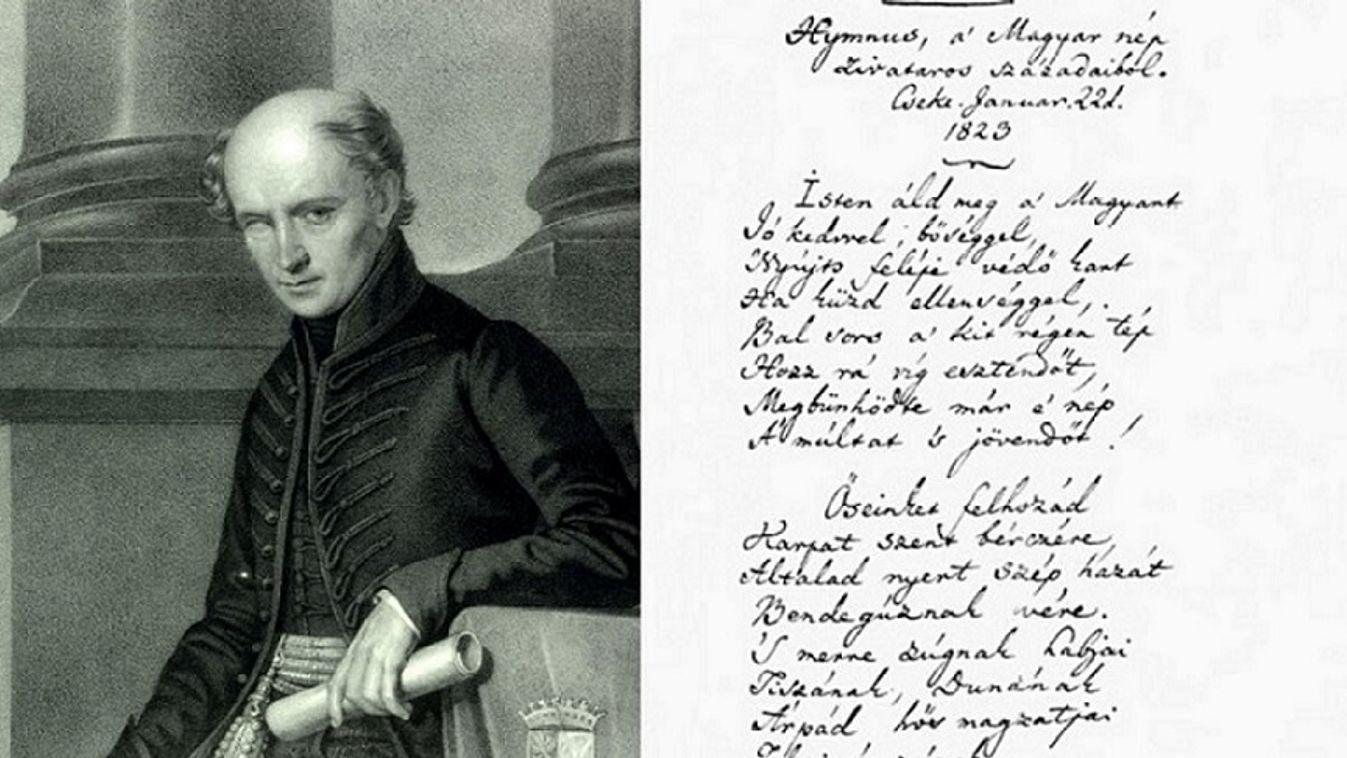 Hymnus, a' Magyar nép
zivataros századaiból.
Cseke. Januar. 22d.
1823
Isten áld meg a' Magyart
Jó kedvvel, bőséggel,
Nyújts feléje védő kart
Ha küzd ellenséggel,
Bal sors a' kit régen tép
Hozz rá víg esztendőt,
Megbűnhödte már e' nép
A' múltat 's jövendőt!
Őseinket felhozád
Karpat szent bérczére
Altalad nyert szép hazát
Bendegúznak vére.
'S merre zúgnak habjai
Tiszának, Dunának
Árpád hős magzatjai